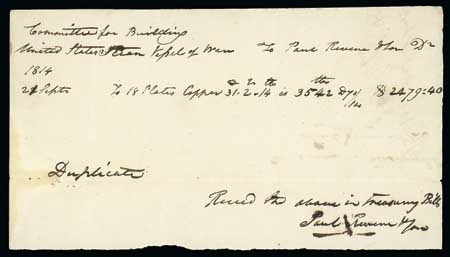 Committee for Building
United States Steam Vessel of War To Paul Revere & Son Dr
1814
21 Septr To 18 Plates Copper 31-2-14 is 3542 @ 70/100 $2479:40
Duplicate
Recevd the above in Treasury Bills
Paul Revere & Son